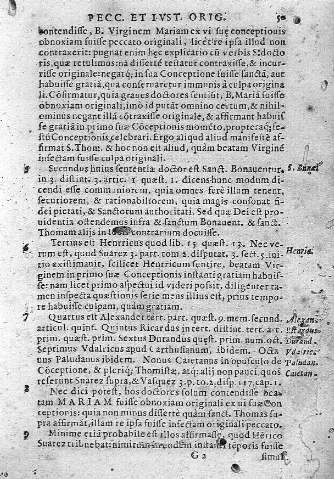 PECC. ET IVST. ORIG.
contendisse, B. Virginem Mariam ex vi suæ conceptionis
obnoxiam fuisse peccato originali, licèt re ipsa illud non
contraxerit: pugnat enim hęc explicatio cũ verbis S. docto
ris, quæ retulimus: nã disertè testatur contraxisse, & incur-
risse originale: negat, in sua Conceptione fuisse sanctã, aut
habuisse gratiã, qua conseruaretur immunis à culpa origina
li. Cõfirmatur, quia graues doctores dicunt, B. Mariã fuisse
obnoxiam originali, imò id putãt omnino certum, & nihil-
ominus negant illã cõtraxisse originale, & affirmant habuis
se gratiã in primo suæ Cõceptionis momẽto, propterea; fe-
stũ Conceptionis celebrari. Ergo aliquid aliud manifestè af-
firmat S. Thom. & hoc non est aliud, quàm beatam Virginẽ
infectam fuisse culpa originali.
5 Secundus huius sententiæ doctor est Sanct. Bonauentur.
in 3. distinct. 3. artic. 1. quæst. 1. dicens hunc modum di-
cendi esse communiorem, quia omnes ferè illum tenent,
securiorem, & rationabiliorem, quia magis consonat fi-
dei pietati, & Sanctorum authoritati. Sed qua Dei est pro-
uidentia ostendemus infra & sanctum Bonauent. & sanct.
Thomam alijs in locis contrarium docuisse.
S. Bonau.
6 Tertius est Henricus quod lib. 15. quæst. 13. Nec ve-
rum est, quod Suarez 3. part. tom. 2. disputat. 3. sect. 5. iniu-
rio existimauit, scilicet Henricum sentire, beatam Virgi-
nem in primo suæ Conceptionis instanti gratiam habuis-
se: nam licet primo aspectu id videri possit, diligenter ta-
men inspecta quæstionis serie mens illius est, prius tempo-
re habuisse culpam, quàm gratiam.
Henric.
7 Quartus est Alexander tert. part. quæst. 9. mem. secund.
articul. quint. Quintus Ricardus in tert. distinct. tert. art.
prim. quæst. prim. Sextus Durandus quæst. prim. num. oct.
Septimus Vdalricus apud Carthusianum, ibidem. Octa-
uus Paludanus ibidem. Nonus Caietanus in opusculo de
Cõceptione, & pleriq; Thomistæ, atq; alij non pauci, quos
referunt Suarez supra, & Vasquez 3. p. to. 2. disp. 117. cap. 1.
Durand.
Vdalric.
Paludan.
Caietan.
8 Nec dici potest, hos doctores solum contendisse bea-
tam MARIAM fuisse obnoxiam originali ex vi suæ Con-
ceptionis: quia non minus disertè quàm sanct. Thomas su-
pra affirmãt, illam re ipsa fuisse infectam originali peccato.
9 Minimè etiã probabile est illos affirmasse, quod Hérico
G 2 simul